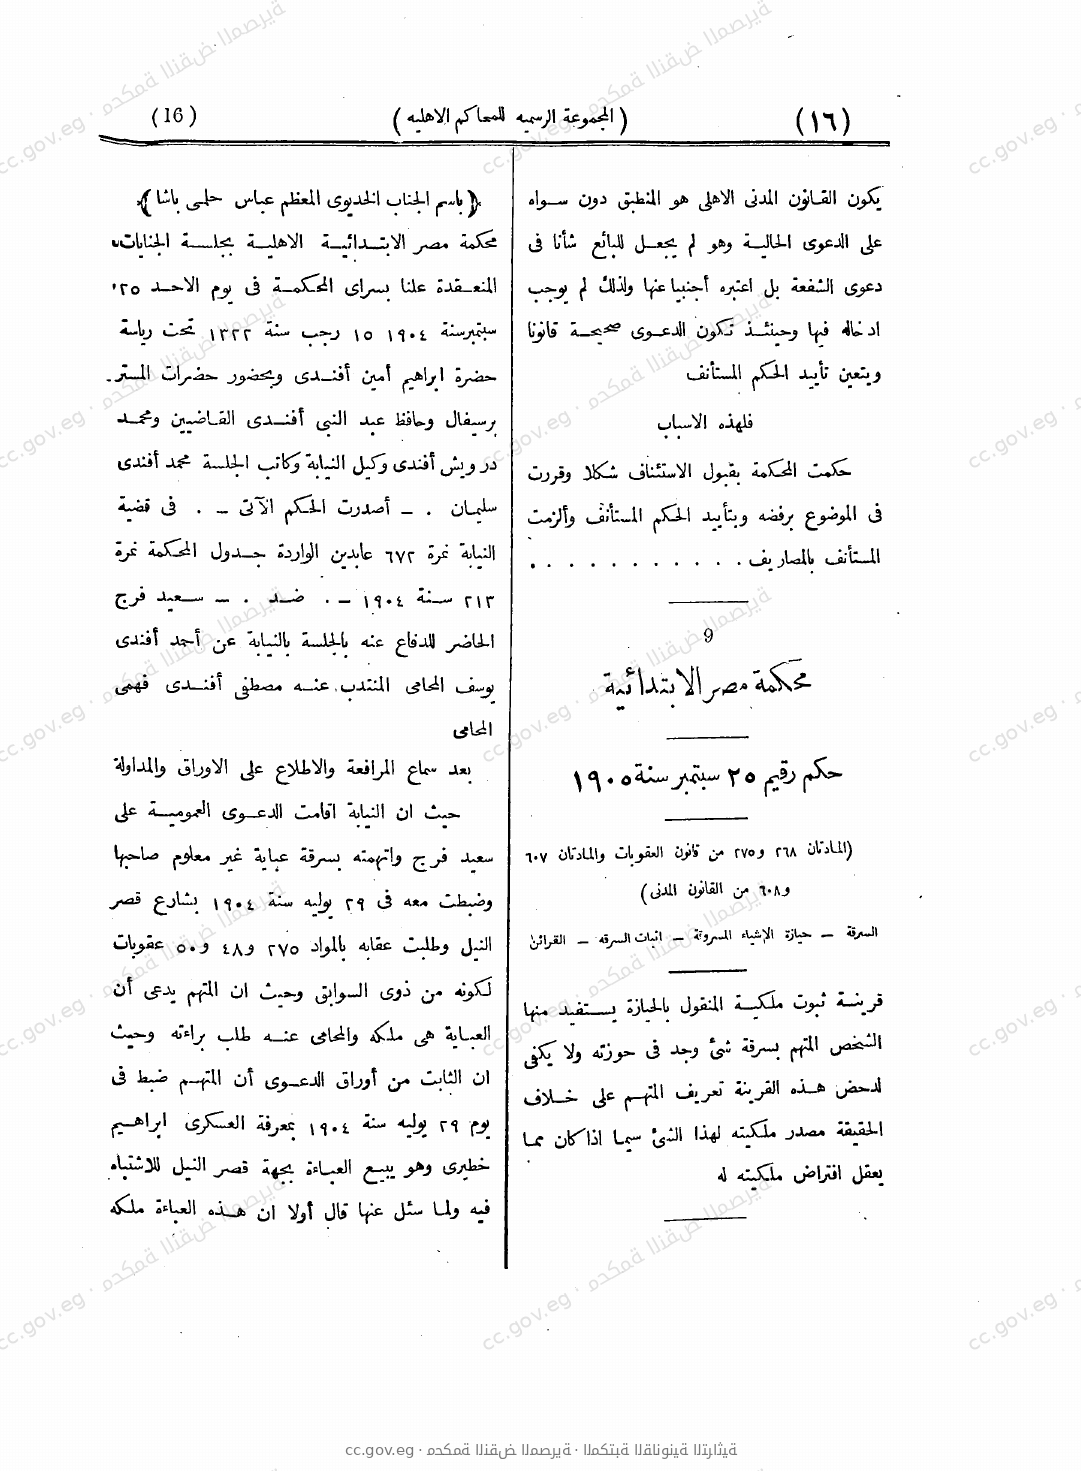 (١٦)
(المجموعة الرسميه للمحاكم الاهليه)
(16)
يكون القانون المدنى الاهلى هو المنطبق دون سواه
على الدعوى الحالية وهو لم يجعل للبائع شأنا فى
دعوى الشفعة بل اعتبره أجنبيا عنها ولذلك لم يوجب
ادخاله فيها وحينئذ تكون الدعوى صحيحة قانونا
ويتعين تأييد الحكم المستأنف
فلهذه الاسباب
حكمت المحكمة بقبول الاستئناف شكلا وقررت
فى الموضوع برفضه وبتأييد الحكم المستأنف وألزمت
المستأنف بالمصاريف . . . . . . . . . . .
9
محكمة مصر الابتدائية
حكم رقيم ٢٥ سبتمبر سنة ١٩٠٥
(المادتان ٢٦٨ و٢٧٥ من قانون العقوبات والمادتان ٦٠٧
و٦٠٨ من القانون المدنى)
السرقة – حيازة الاشياء المسروقة – اثبات السرقه – القرائن
قرينة ثبوت ملكية المنقول بالحيازة يستفيد منها
الشخص المتهم بسرقة شئ وجد فى حوزته ولا يكفى
لدحض هذه القرينة تعريف المتهم على خلاف
الحقيقة مصدر ملكيته لهذا الشئ سيما اذا كان مما
يعقل افتراض ملكيته له
﴿باسم الجناب الخديوى المعظم عباس حلمى باشا﴾
محكمة مصر الابتدائية الاهلية بجلسة الجنايات
المنعقدة علنا بسراى المحكمة فى يوم الاحد ٢٥
سبتمبر سنة ١٩٠٤ ١٥ رجب سنة ١٣٢٢ تحت رياسة
حضرة ابراهيم أمين أفندى وبحضور حضرات المستر
برسيفال وحافظ عبد النبى أفندى القاضيين ومحمد
درويش أفندى وكيل النيابة وكاتب الجلسة محمد أفندى
سليمان . – أصدرت الحكم الآتى – . فى قضية
النيابة نمرة ٦٧٢ عابدين الواردة جدول المحكمة نمرة
٢١٣ سنة ١٩٠٤ – . ضد . – سعيد فرج
الحاضر للدفاع عنه بالجلسة بالنيابة عن أحمد أفندى
يوسف المحامى المنتدب عنه مصطفى أفندى فهمى
المحامى
بعد سماع المرافعة والاطلاع على الاوراق والمداولة
حيث ان النيابة اقامت الدعوى العمومية على
سعيد فرج واتهمته بسرقة عباية غير معلوم صاحبها
وضبطت معه فى ٢٩ يوليه سنة ١٩٠٤ بشارع قصر
النيل وطلبت عقابه بالمواد ٢٧٥ و٤٨ و٥٠ عقوبات
لكونه من ذوى السوابق وحيث ان المتهم يدعى أن
العباية هى ملكه والمحامى عنه طلب براءته وحيث
ان الثابت من أوراق الدعوى أن المتهم ضبط فى
يوم ٢٩ يوليه سنة ١٩٠٤ بمعرفة العسكرى ابراهيم
خطيرى وهو يبيع العباءة بجهة قصر النيل للاشتباه
فيه ولما سئل عنها قال أولا ان هذه العباءة ملكه
cc.gov.eg · محكمة النقض المصرية · المكتبة القانونية التراثية